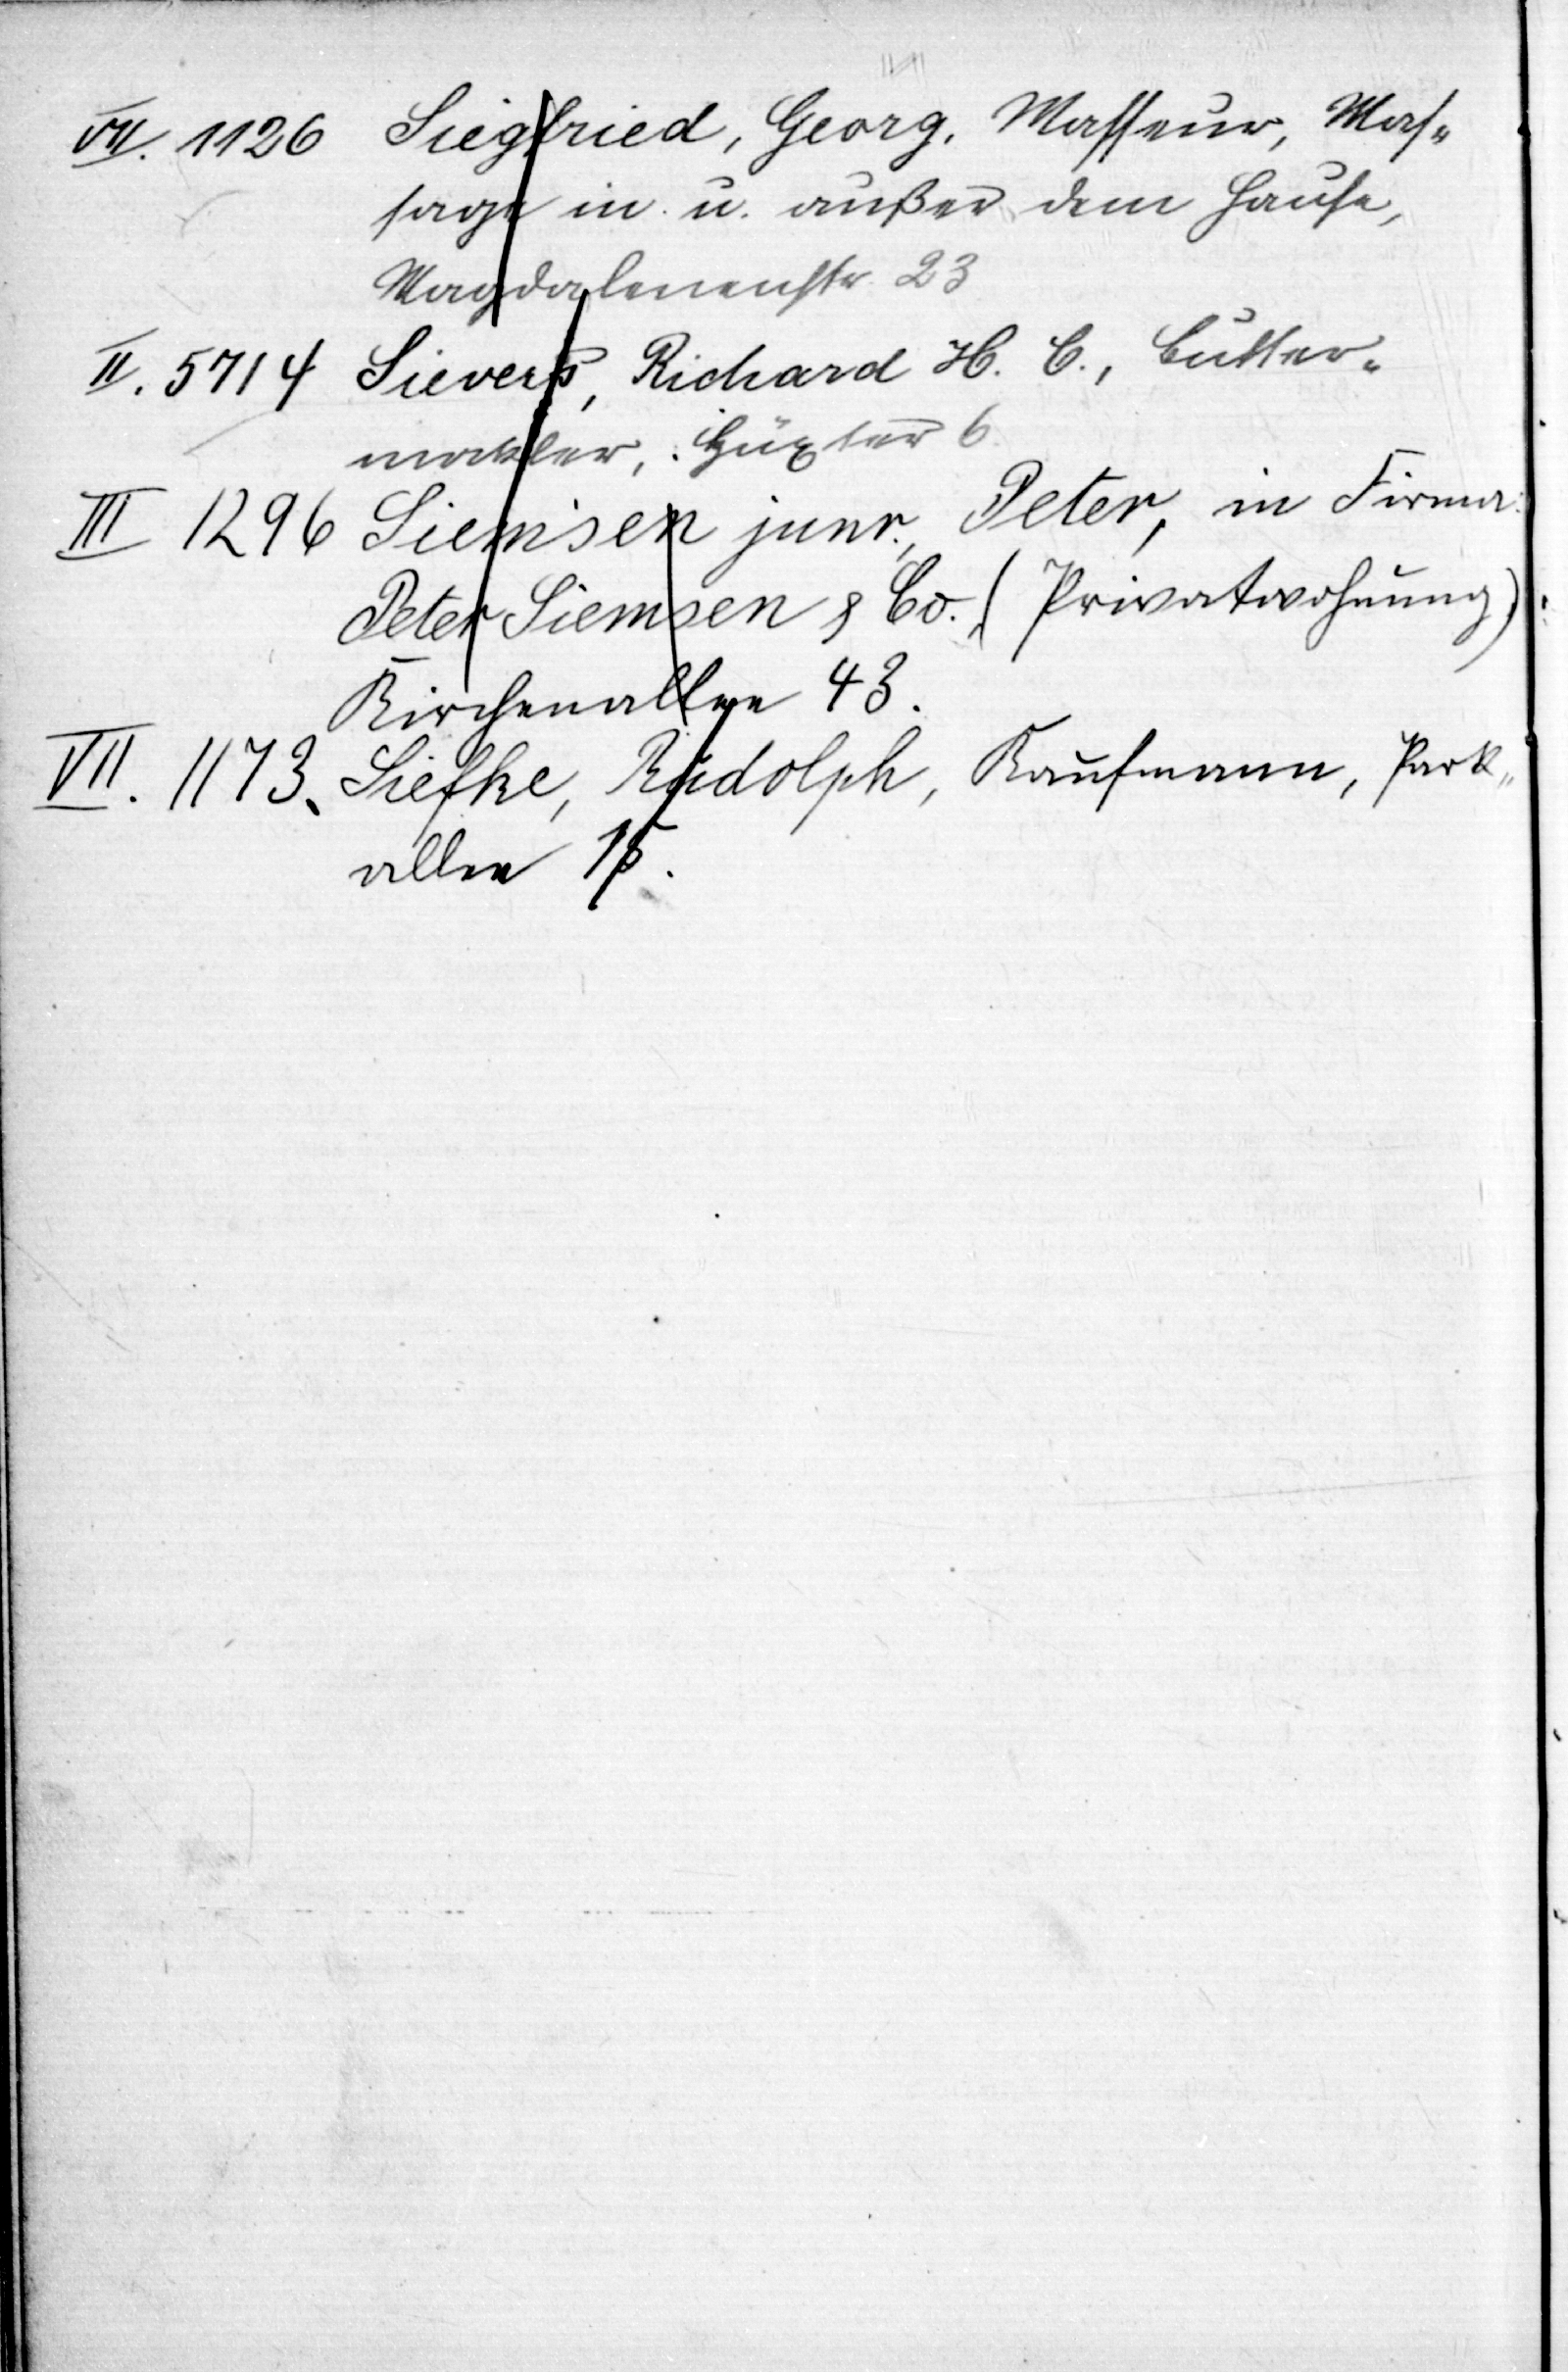 VII. 1126 Siegfried, Georg, Masseur, Mas-
sage in u. außer dem Hause,
Magdalenenstr. 23
II. 5714 Sievers, Richard H. C., Butter-
makler, Hüxter 6.
III 1296 Siemsen junr., Peter, in Firma:
Peter Siemsen & Co. (Privatwohnung)
Kirchenallee 43.
VII. 1173. Siefke, Rudolph, Kaufmann, Park-
allee 15.